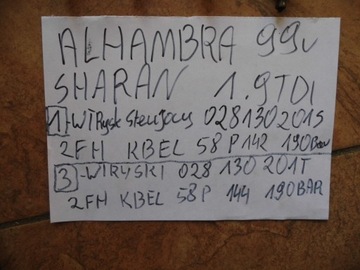 ALHAMBRA 99r
SHARAN 1.9TDI
1 -WTRysk Sterujący 028130201S
2FH KBEL 58 P 142 190Bar
3 -WTRYSKI 028 130 201T
2FH KBEL 58P 144 190BAR